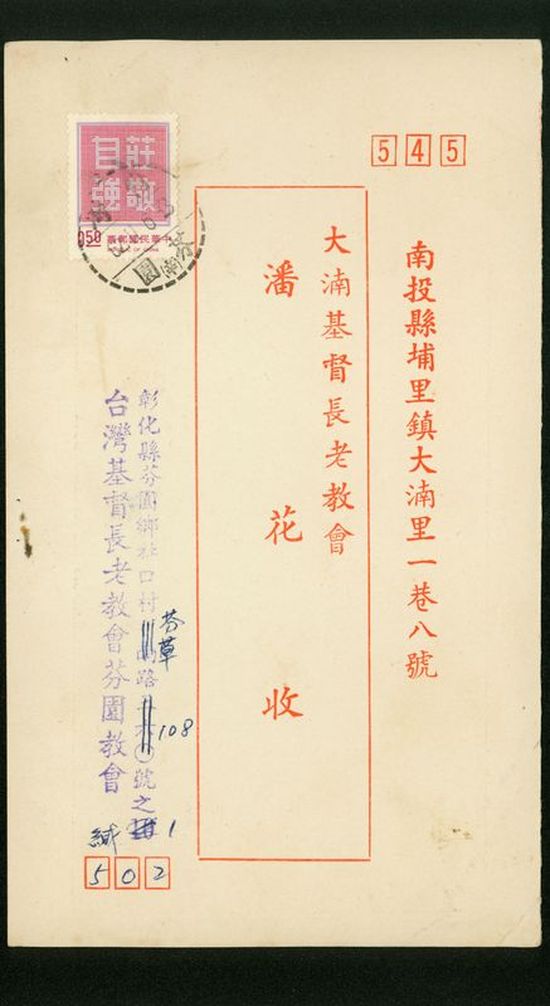 545
南投縣埔里鎮大湳里一巷八號
大湳基督長老教會
潘花 收
莊敬
自強
0.50
中華民國郵票
彰化縣芬園鄉社口村 路 號之
芬草
108
1
台灣基督長老教會芬園教會
緘
502